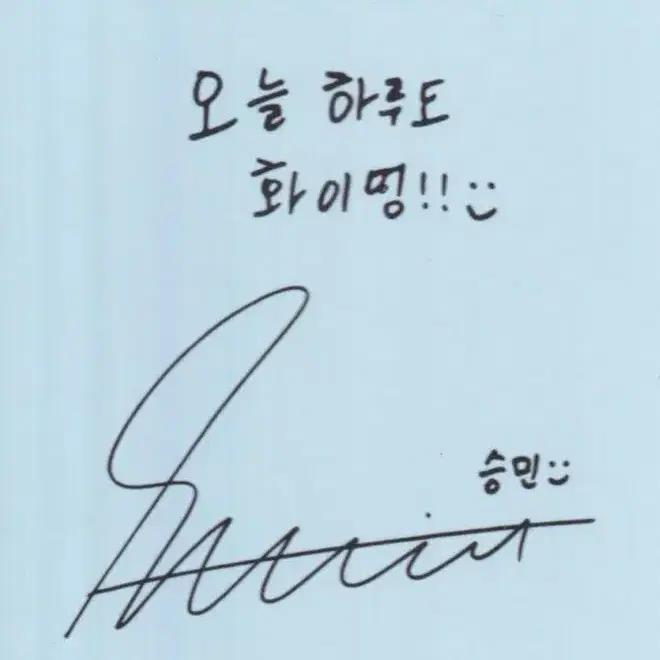 오늘 하루도
화이멍!!:)
승민:)